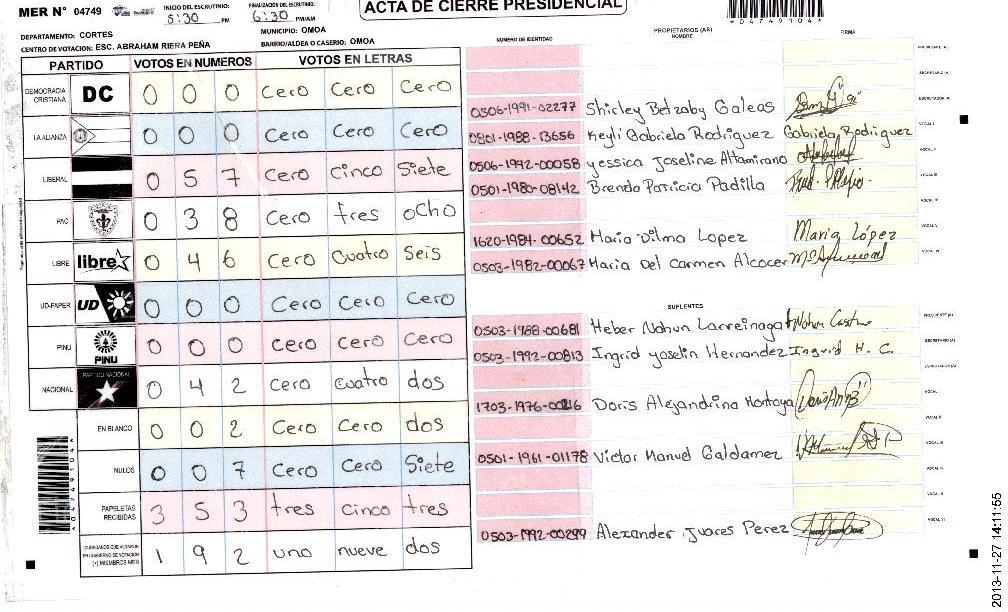 ACTA DE CIERRE PRESIDENCIAL
MER N° 04749
INICIO DEL ESCRUTINIO: 5:30 PM
FINALIZACION DEL ESCRUTINIO: 6:30 PM/AM
*04749104*
DEPARTAMENTO: CORTES
MUNICIPIO: OMOA
CENTRO DE VOTACION: ESC. ABRAHAM RIERA PEÑA
BARRIO/ALDEA O CASERIO: OMOA
PARTIDO VOTOS EN NUMEROS VOTOS EN LETRAS
DEMOCRACIA CRISTIANA DC 0 0 0 Cero Cero Cero
LA ALIANZA 0 0 0 Cero Cero Cero
LIBERAL 0 5 7 Cero Cinco Siete
PAC 0 3 8 Cero tres ocho
LIBRE libre 0 4 6 Cero Cuatro Seis
UD-FAPER UD 0 0 0 Cero Cero Cero
PINU PINU 0 0 0 Cero Cero Cero
NACIONAL PARTIDO NACIONAL 0 4 2 Cero Cuatro dos
EN BLANCO 0 0 2 Cero Cero dos
NULOS 0 0 7 Cero Cero Siete
PAPELETAS RECIBIDAS 3 5 3 tres cinco tres
CIUDADANOS QUE VOTARON EN CUADERNO DE VOTACION (+) MIEMBROS MER 1 9 2 uno nueve dos
*04749104*
NUMERO DE IDENTIDAD PROPIETARIOS (AS) NOMBRE FIRMA
PRESIDENTE (A)
SECRETARIO (A)
0506-1991-02277 Shirley Betzaby Galeas ESCRUTADOR (A)
0801-1988-13656 Keyli Gabriela Rodriguez Gabriela Rodriguez VOCAL I
0506-1992-00058 yessica Joseline Altamirano VOCAL II
0501-1980-08142 Brenda Patricia Padilla VOCAL III
VOCAL IV
1620-1984-00652 Maria Dilma Lopez Maria López VOCAL V
0503-1982-00067 Maria Del Carmen Alcocer VOCAL VI
SUPLENTES
0503-1988-00681 Heber Nahun Larreinaga PRESIDENTE (A)
0503-1992-00813 Ingrid yoselin Hernandez Ingrid H. C. SECRETARIO (A)
ESCRUTADOR (A)
1703-1976-00216 Doris Alejandrina Montoya VOCAL I
VOCAL II
0501-1961-01178 Victor Manuel Galdamez VOCAL III
VOCAL IV
VOCAL V
0503-1992-00299 Alexander Juares Perez VOCAL VI
2013-11-27 14:11:55